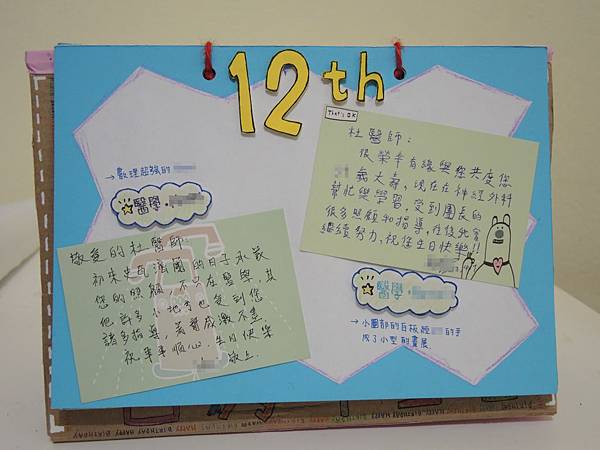 12th
That's OK
杜醫師:
很榮幸有緣與您共度您
義大壽,現在在神經外科
幫忙與學習,受到團長的
很多照顧和指導,在後兒會
繼續努力,祝您生日快樂!!
→數理超強的
☆醫學.
敬愛的杜醫師:
初來
的日子承蒙
您的照顧,不只在醫學,其
他許多小地方也受到您
諸多指導,著實感激不盡
祝事事順心,生日快樂
敬上.
☆醫學.
→小團部的白板經 的手
成了小型的畫展.
HAPPY BIRTHDAY HAPPY BIRTHDAY